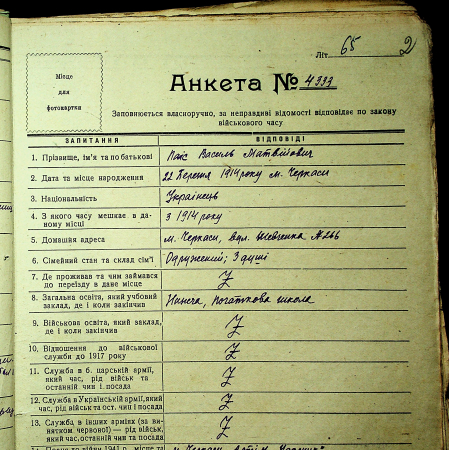 Літ 65 2
Місце
для
фотокартки
Анкета № 4333
Заповнюється власноручно, за неправдиві відомості відповідає по закону
військового часу
ЗАПИТАННЯ ВІДПОВІДІ
1. Прізвище, ім'я та по батькові Василь Матвійович
2. Дата та місце народження 22 березня 1914 року м. Черкаси
3. Національність Українець
4. З якого часу мешкає в да- з 1914 року
ному місці
5. Домашня адреса м. Черкаси, вул. Шевченка № 266
6. Сімейний стан та склад сім'ї Одружений; 3 душі
7. Де проживав та чим займався
до переїзду в дане місце
8. Загальна освіта, який учбовий Нижча, початкова школа
заклад, де і коли закінчив
9. Військова освіта, який заклад,
де і коли закінчив
10. Відношення до військової
служби до 1917 року
11. Служба в б. царській армії,
який час, рід військ та
останній чин і посада
12. Служба в Українській армії, який
час, рід військ та ост. чин і посада
13. Служба в інших арміях (за ви-
нятком червоної) — рід військ,
який час, останній чин та посада